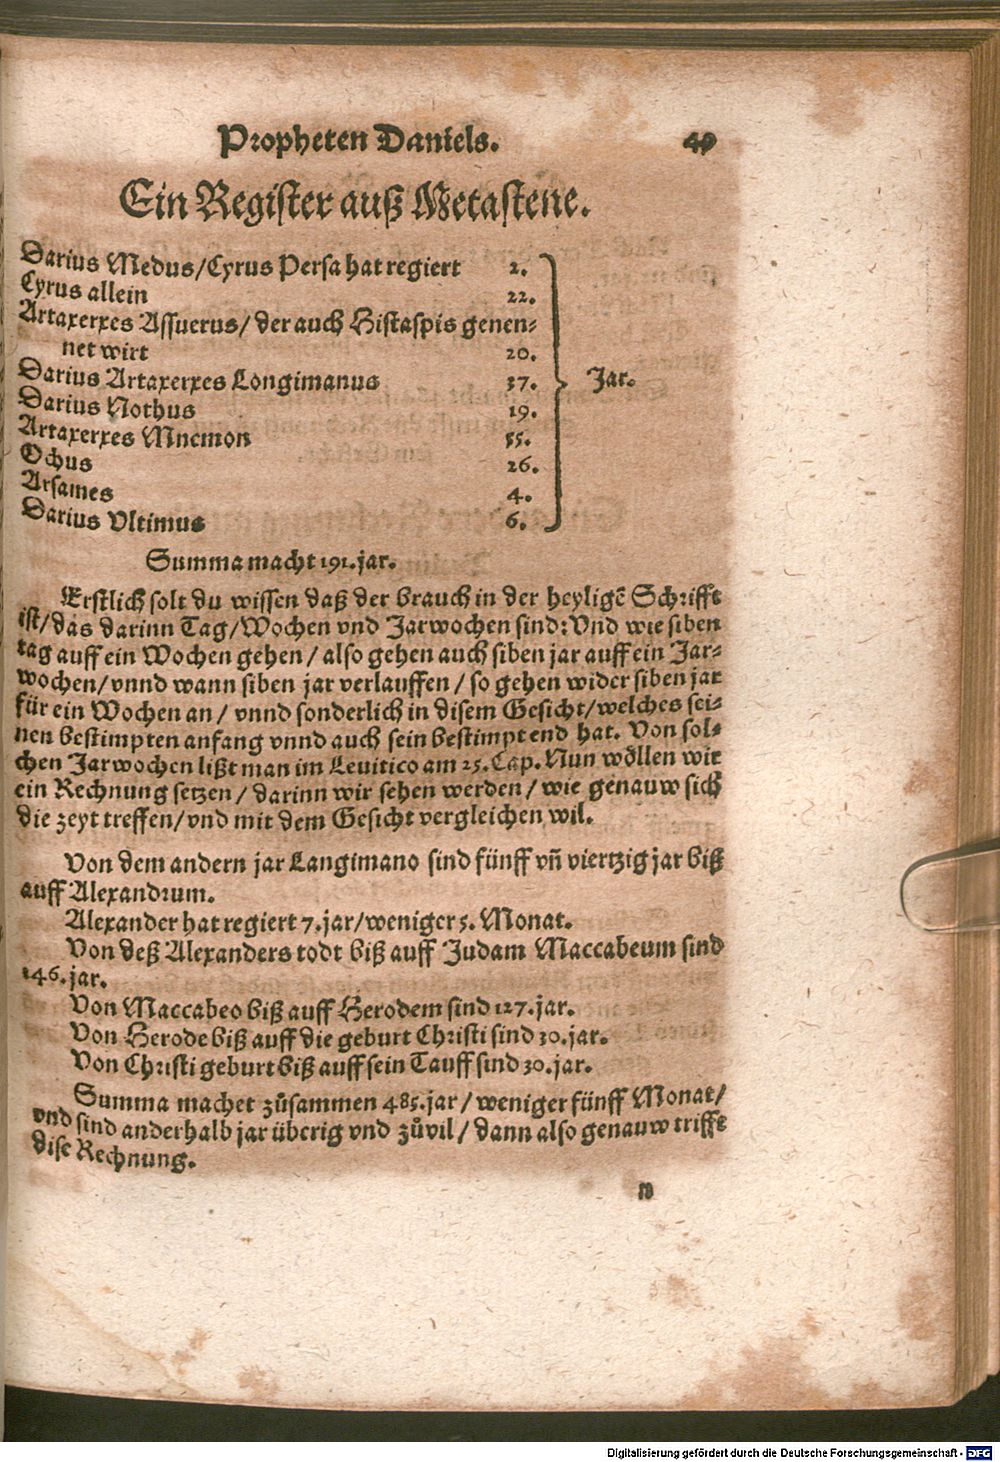 Propheten Daniels. 49
Ein Register auß Metastene.
Darius Medus/Cyrus Persa hat regiert 2.
Cyrus allein 22.
Artaxerxes Assuerus/der auch Histaspis genen-
net wirt 20.
Darius Artaxerxes Longimanus 37. Jar.
Darius Nothus 19.
Artaxerxes Mnemon 55.
Ochus 26.
Arsames 4.
Darius Vltimus 6.
Summa macht 191. jar.
Erstlich solt du wissen daß der brauch in der heyligẽ Schrifft
ist/das darinn Tag/Wochen vnd Jarwochen sind: Vnd wie siben
tag auff ein Wochen gehen/also gehen auch siben jar auff ein Jar-
wochen/vnnd wann siben jar verlauffen/so gehen wider siben jar
für ein Wochen an/vnnd sonderlich in disem Gesicht/welches sei-
nen bestimpten anfang vnnd auch sein bestimpt end hat. Von sol-
chen Jarwochen lißt man im Leuitico am 25. Cap. Nun wöllen wir
ein Rechnung setzen/darinn wir sehen werden/wie genauw sich
die zeyt treffen/vnd mit dem Gesicht vergleichen wil.
Von dem andern jar Langimano sind fünff vñ viertzig jar biß
auff Alexandrum.
Alexander hat regiert 7. jar/weniger 5. Monat.
Von deß Alexanders todt biß auff Judam Maccabeum sind
146. jar.
Von Maccabeo biß auff Herodem sind 127. jar.
Von Herode biß auff die geburt Christi sind 30. jar.
Von Christi geburt biß auff sein Tauff sind 30. jar.
Summa machet zůsammen 485. jar/weniger fünff Monat/
vnd sind anderhalb jar überig vnd zůvil/dann also genauw trifft
dise Rechnung.
N
Digitalisierung gefördert durch die Deutsche Forschungsgemeinschaft - DFG